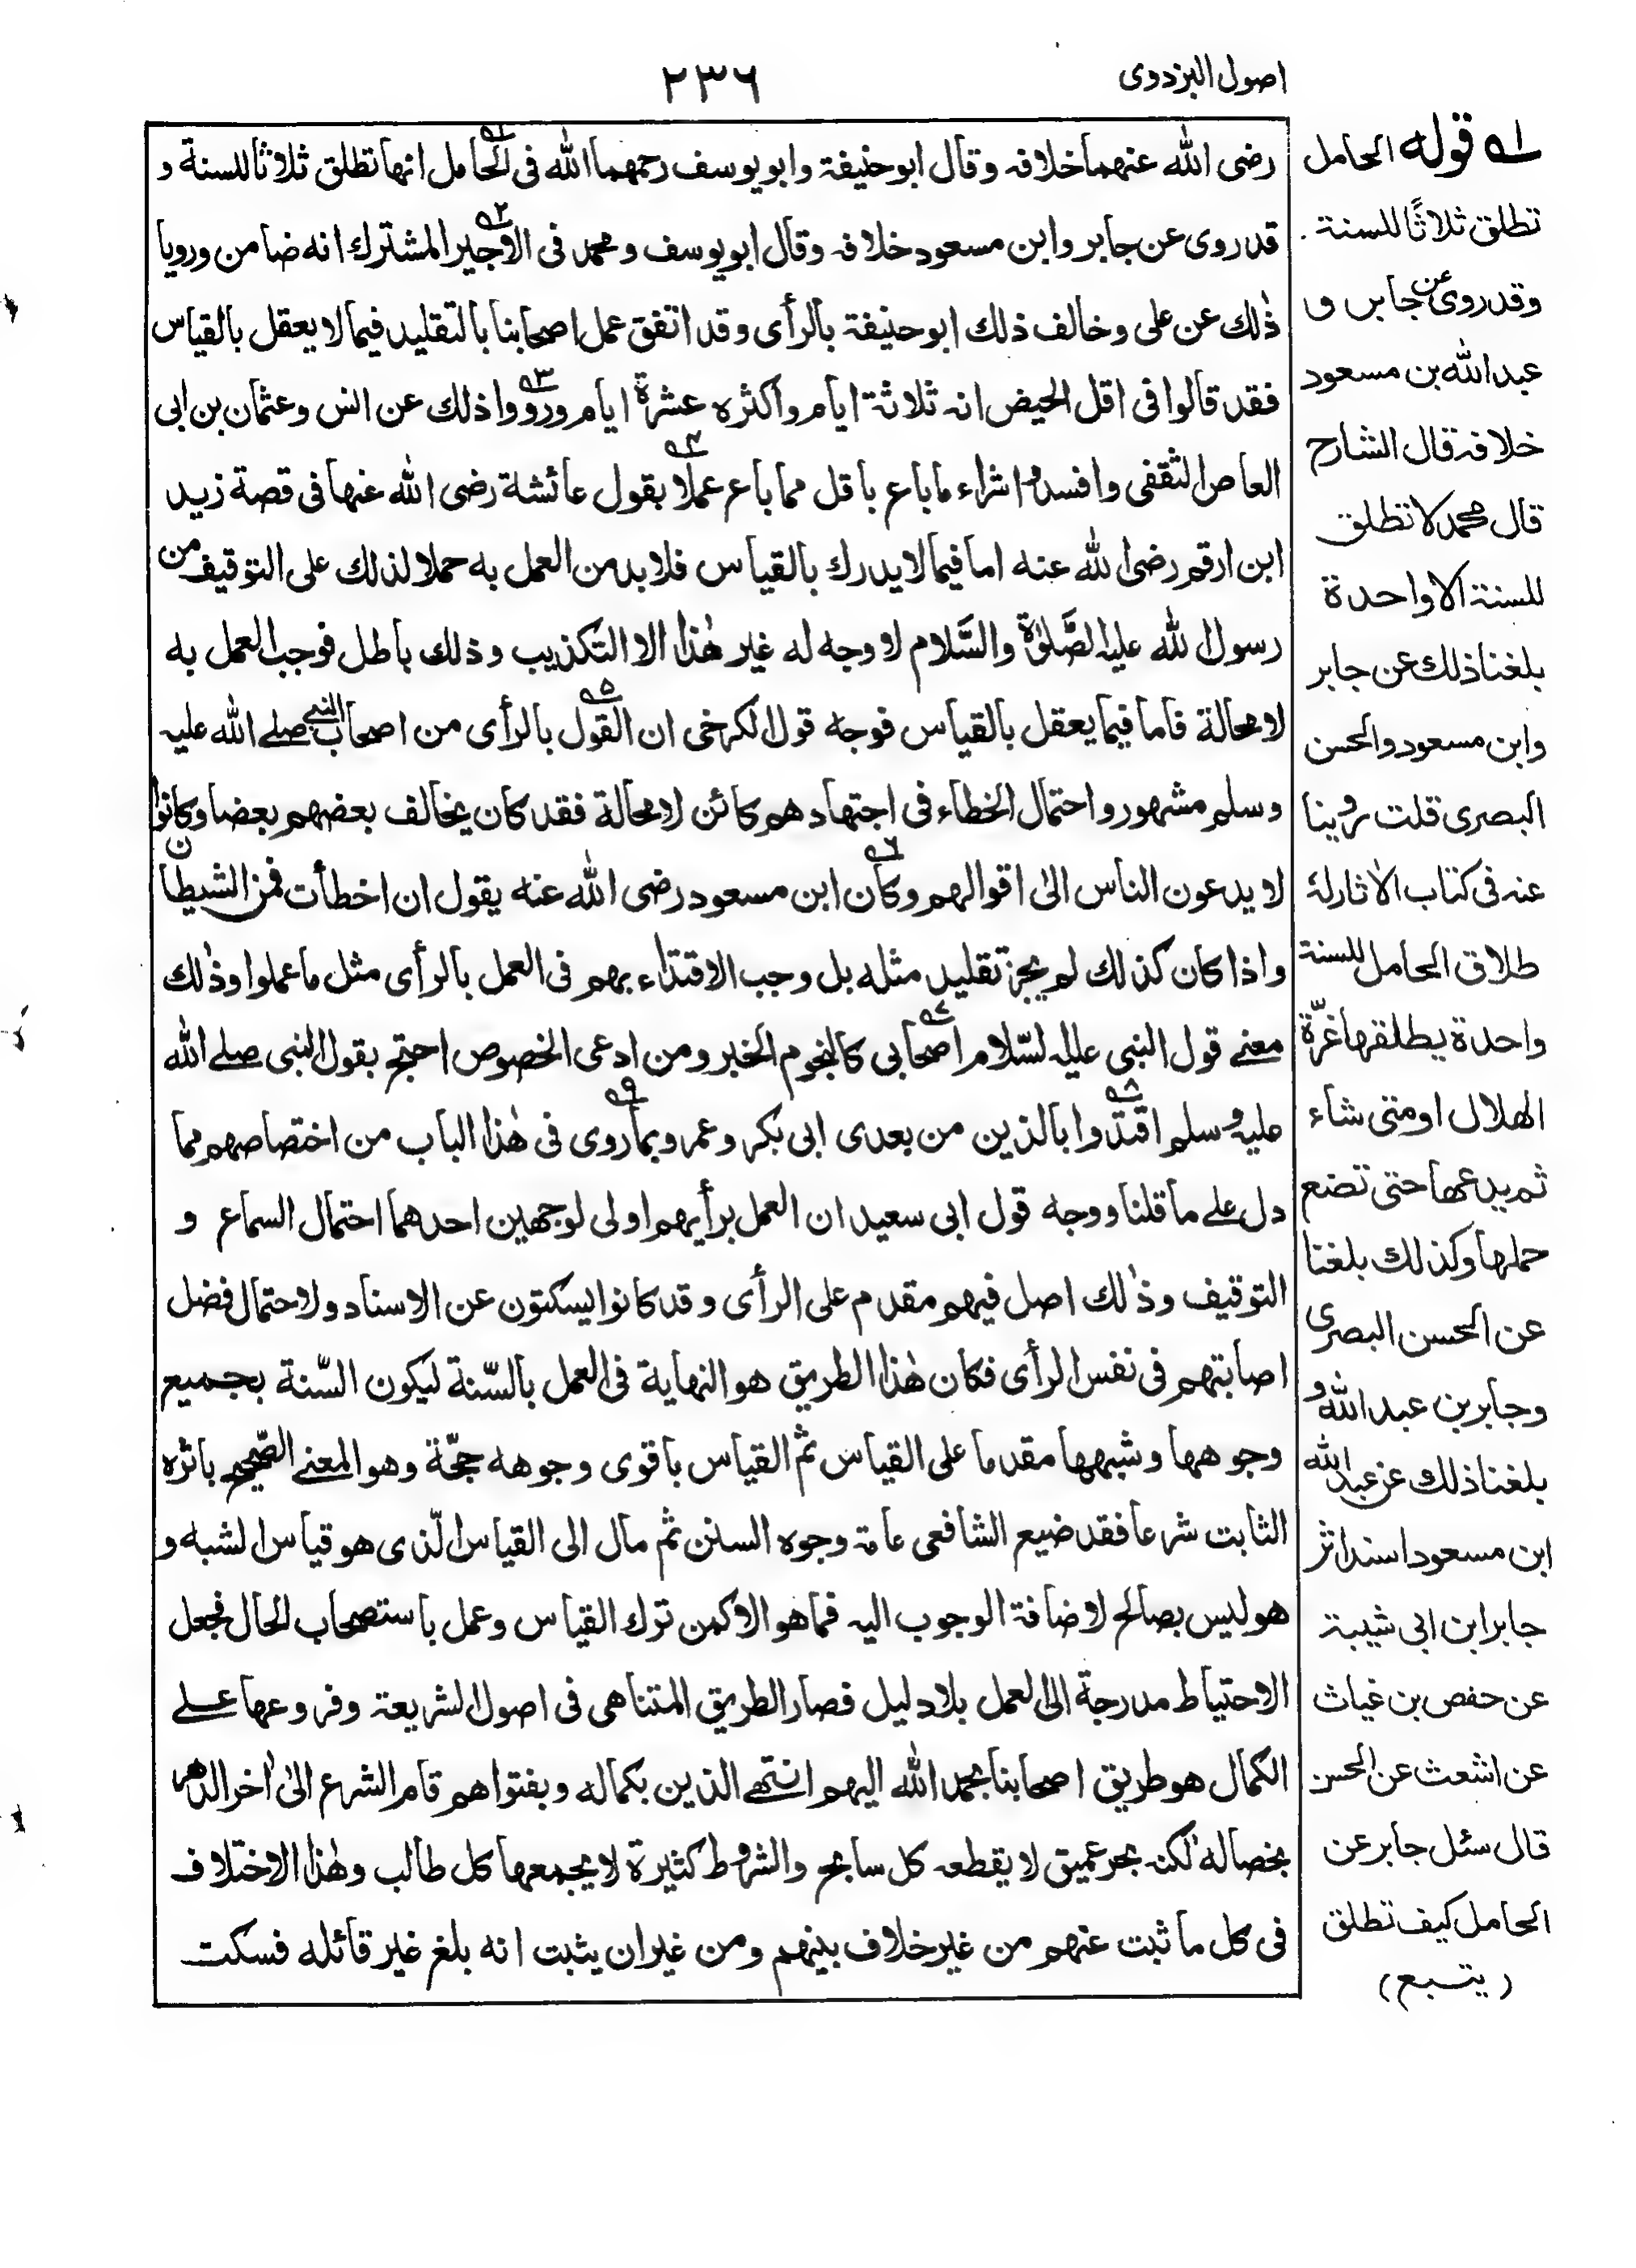 اصول البزدوى
٢٣٦
رضى الله عنهما خلافه وقال ابو حنيفة وابو يوسف رحمهما الله فى الحامل انها تطلق ثلاثا للسنة و
قد روى عن جابر وابن مسعود خلافه وقال ابو يوسف و محمد فى الاجير المشترك انه ضامن ورويا
ذٰلك عن على وخالف ذلك ابو حنيفة بالرأى وقد اتفق عمل اصحابنا بالتقليد فيما لا يعقل بالقياس
فقد قالوا فى اقل الحيض انه ثلاثة ايام واكثره عشرة ايام ورووا ذلك عن انس وعثمان بن ابى
العاص الثقفى وافسدوا شراء ما باع باقل مما باع عملا بقول عائشة رضى الله عنها فى قصة زيد
ابن ارقم رضى الله عنه اما فيما لا يدرك بالقياس فلا بد من العمل به حملا لذلك على التوقيف من
رسول الله عليه الصَّلوٰة والسَّلام لا وجه له غير هٰذا الا التكذيب وذلك باطل فوجب العمل به
لا محالة فاما فيما يعقل بالقياس فوجه قول الكرخى ان القول بالرأى من اصحاب النبى صلے الله عليه
وسلم مشهور واحتمال الخطاء فى اجتهادهم كائن لا محالة فقد كان يخالف بعضهم بعضا وكانوا
لا يدعون الناس الىٰ اقوالهم وكان ابن مسعود رضى الله عنه يقول ان اخطأت فمن الشيطان
واذا كان كذلك لم يجز تقليد مثله بل وجب الاقتداء بهم فى العمل بالرأى مثل ما عملوا وذٰلك
معنے قول النبى عليه السّلام اصحابى كالنجوم الخبر ومن ادعى الخصوص احتج بقول النبى صلے الله
عليه وسلم اقتدوا بالذين من بعدى ابى بكر وعمر وبما روى فى هٰذا الباب من اختصاصهم مما
دل علے ما قلنا ووجه قول ابى سعيد ان العمل برأيهم اولى لوجهين احدهما احتمال السماع و
التوقيف وذٰلك اصل فيهم مقدم على الرأى وقد كانوا يسكتون عن الاسناد ولاحتمال فضل
اصابتهم فى نفس الرأى فكان هٰذا الطريق هو النهاية فى العمل بالسّنة ليكون السّنة بجميع
وجوهها وشبهها مقدما على القياس ثم القياس باقوى وجوهه حجّة وهو المعنے الصّحيح باثره
الثابت شرعا فقد ضيع الشافعى عامة وجوه السنن ثم مال الى القياس الّذى هو قياس الشبه و
هو ليس بصالح لاضافة الوجوب اليه فما هو الا كمن ترك القياس وعمل باستصحاب الحال فجعل
الاحتياط مدرجة الى العمل بلا دليل فصار الطريق المتناهى فى اصول الشريعة وفروعها علے
الكمال هو طريق اصحابنا بحمد الله اليهم انتهے الذين بكماله وبفتواهم قام الشرع الىٰ اٰخر الدهر
بخصاله لٰكنه بحر عميق لا يقطعه كل سابح والشروط كثيرة لا يجمعها كل طالب وهٰذا الاختلاف
فى كل ما ثبت عنهم من غير خلاف بينهم ومن غير ان يثبت انه بلغ غير قائله فسكت
١ قوله الحامل
تطلق ثلاثًا للسنة.
وقد روى عن جابر و
عبد الله بن مسعود
خلافه قال الشارح
قال محمد لا تطلق
للسنة الا واحدة
بلغنا ذلك عن جابر
وابن مسعود والحسن
البصرى قلت روينا
عنه فى كتاب الاٰثار له
طلاق الحامل للسنة
واحدة يطلقها غرّة
الهلال او متى شاء
ثم يدعها حتى تضع
حملها وكذلك بلغنا
عن الحسن البصرى
وجابر بن عبد الله و
بلغنا ذلك عن عبد الله
ابن مسعود اسند اثر
جابر ابن ابى شيبة
عن حفص بن غياث
عن اشعث عن الحسن
قال سئل جابر عن
الحامل كيف تطلق
(يتبع)